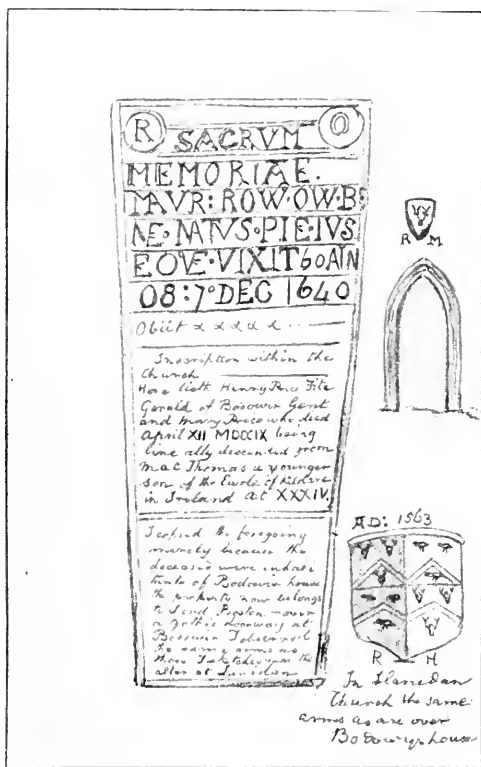 R SACRVM O
MEMORIAE.
MAVR: ROW·OW·B:
NE·NATVS·PIE·IVS
EQVE·VIXIT 60 AÑ
08:7º DEC 1640
Obiit
Inscription within the
Church
Here lieth Henry Fitz
Gerald of Bodowir Gent
and Mary who died
April XII MDCCIX being
line ally descended from
Mac Thomas a younger
son of the Earle of Kildare
in Ireland at XXXIV.
I copied the foregoing
merely because the
deceased were
of Bodowir house
the property now belongs
to Lord Boston over
a gothic doorway at
Bodowir I observed
the same arms as
those I sketched near the
altar at
R M
AD: 1563
R H
In Llanedan
Church the same
arms as are over
Bodowyr house